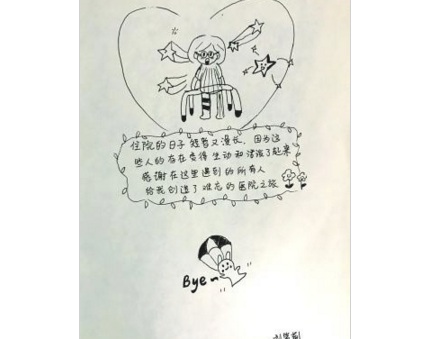 住院的日子短暂又漫长，因为这
些人的存在变得生动和津液了起来
感谢在这里遇到的所有人
给我创造了难忘的医院之旅
Bye~